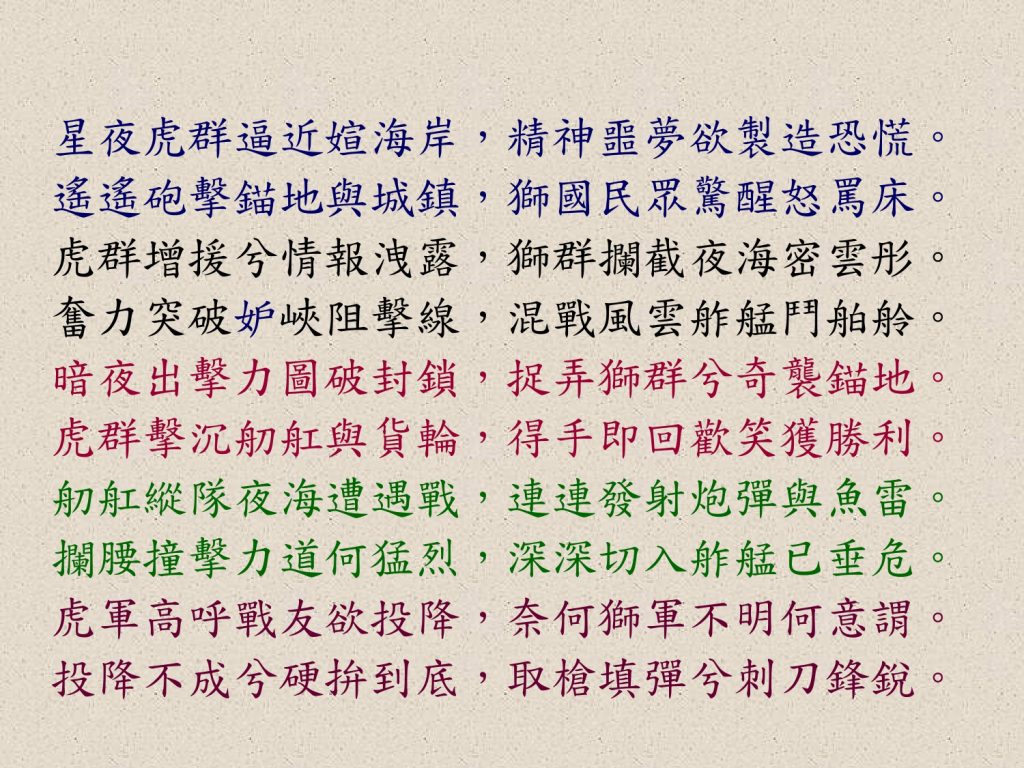 星夜虎群逼近媗海岸，精神噩夢欲製造恐慌。
遙遙砲擊錨地與城鎮，獅國民眾驚醒怒罵床。
虎群增援兮情報洩露，獅群攔截夜海密雲彤。
奮力突破妒峽阻擊線，混戰風雲舴艋鬥舶舲。
暗夜出擊力圖破封鎖，捉弄獅群兮奇襲錨地。
虎群擊沉舠舡與貨輪，得手即回歡笑獲勝利。
舠舡縱隊夜海遭遇戰，連連發射炮彈與魚雷。
攔腰撞擊力道何猛烈，深深切入舴艋已垂危。
虎軍高呼戰友欲投降，奈何獅軍不明何意謂。
投降不成兮硬拚到底，取槍填彈兮刺刀鋒銳。